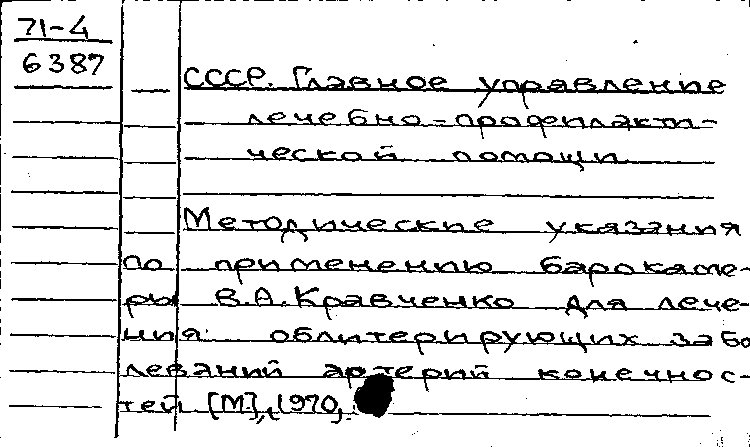 71-4
6387
СССР. Главное управление
лечебно-профилакти-
ческой помощи
Методические указания
по применению барокаме-
ры В.А.Кравченко для лече-
ния облитерирующих забо
леваний артерий конечнос-
тей [М], 1970,